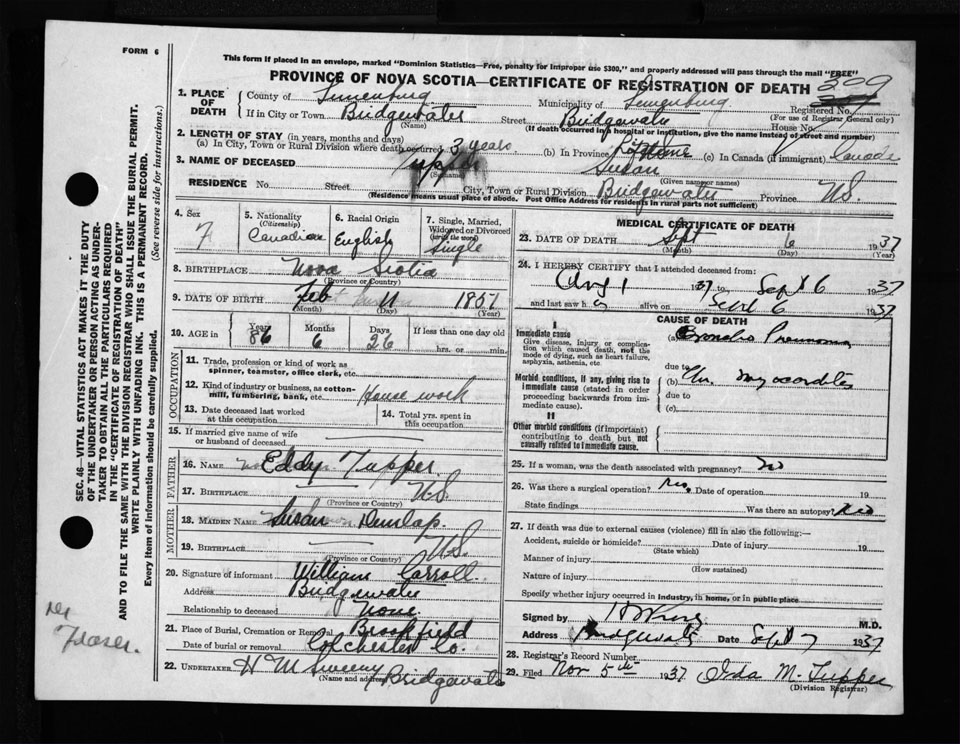 FORM 6
This form if placed in an envelope, marked "Dominion Statistics—Free, penalty for improper use $300," and properly addressed will pass through the mail "FREE"
PROVINCE OF NOVA SCOTIA—CERTIFICATE OF REGISTRATION OF DEATH 399
1. PLACE OF DEATH County of Lunenburg Municipality of Lunenburg Registered No.
(For use of Registrar General only)
If in City or Town Bridgewater Street Bridgewater House No.
(Name) (If death occurred in a hospital or institution, give the name instead of street and number)
2. LENGTH OF STAY (in years, months and days)
(a) In City, Town or Rural Division where death occurred 3 years (b) In Province Lifetime (c) In Canada (if immigrant) Canada
3. NAME OF DECEASED Tupper Susan
(Surname) (Given name or names)
RESIDENCE No. Street City, Town or Rural Division Bridgewater Province N.S.
(Residence means usual place of abode. Post Office Address for residents in rural parts not sufficient)
4. Sex 5. Nationality (Citizenship) 6. Racial Origin 7. Single, Married, Widowed or Divorced (write the word)
F Canadian English Single
8. BIRTHPLACE Nova Scotia
(Province or Country)
9. DATE OF BIRTH Feb 11 1851
(Month) (Day) (Year)
10. AGE in Years Months Days If less than one day old
86 6 26 hrs. or min.
OCCUPATION
11. Trade, profession or kind of work as spinner, teamster, office clerk, etc.
12. Kind of industry or business, as cotton-mill, lumbering, bank, etc. House work
13. Date deceased last worked at this occupation 14. Total yrs. spent in this occupation
15. If married give name of wife or husband of deceased
FATHER
16. NAME Eddy Tupper
17. BIRTHPLACE N.S.
(Province or Country)
MOTHER
18. MAIDEN NAME Susan Dunlap.
19. BIRTHPLACE N.S.
(Province or Country)
20. Signature of informant William Carroll
Address Bridgewater
Relationship to deceased None
21. Place of Burial, Cremation or Removal Brookfield
Date of burial or removal Colchester Co.
22. UNDERTAKER H M Sweeny Bridgewater
(Name and address)
MEDICAL CERTIFICATE OF DEATH
23. DATE OF DEATH Sept 6 1937
(Month) (Day) (Year)
24. I HEREBY CERTIFY that I attended deceased from:
Aug 1 1937 to Sept 6 1937
and last saw h alive on Sept 6 1937
CAUSE OF DEATH
I
Immediate cause
Give disease, injury, or complication which caused death, not the mode of dying, such as heart failure, asphyxia, asthenia, etc.
(a) Broncho Pneumonia
due to
Morbid conditions, if any, giving rise to immediate cause (stated in order proceeding backwards from immediate cause).
(b) Chr. myocarditis
due to
(c)
II
Other morbid conditions (if important) contributing to death but not causally related to immediate cause.
25. If a woman, was the death associated with pregnancy? No
26. Was there a surgical operation? No Date of operation 19
State findings Was there an autopsy? No
27. If death was due to external causes (violence) fill in also the following:—
Accident, suicide or homicide? Date of injury 19
(State which)
Manner of injury
(How sustained)
Nature of injury
Specify whether injury occurred in industry, in home, or in public place
Signed by M.D.
Address Bridgewater Date Sept 7 1937
28. Registrar's Record Number
29. Filed Nov 5th 1937 Ida M. Tupper
(Division Registrar)
SEC. 46—VITAL STATISTICS ACT MAKES IT THE DUTY
OF THE UNDERTAKER OR PERSON ACTING AS UNDER-
TAKER TO OBTAIN ALL THE PARTICULARS REQUIRED
IN THE "CERTIFICATE OF REGISTRATION OF DEATH"
AND TO FILE THE SAME WITH THE DIVISION REGISTRAR WHO SHALL ISSUE THE BURIAL PERMIT.
WRITE PLAINLY WITH UNFADING INK. THIS IS A PERMANENT RECORD.
Every item of information should be carefully supplied. (See reverse side for instructions.)
Fraser.